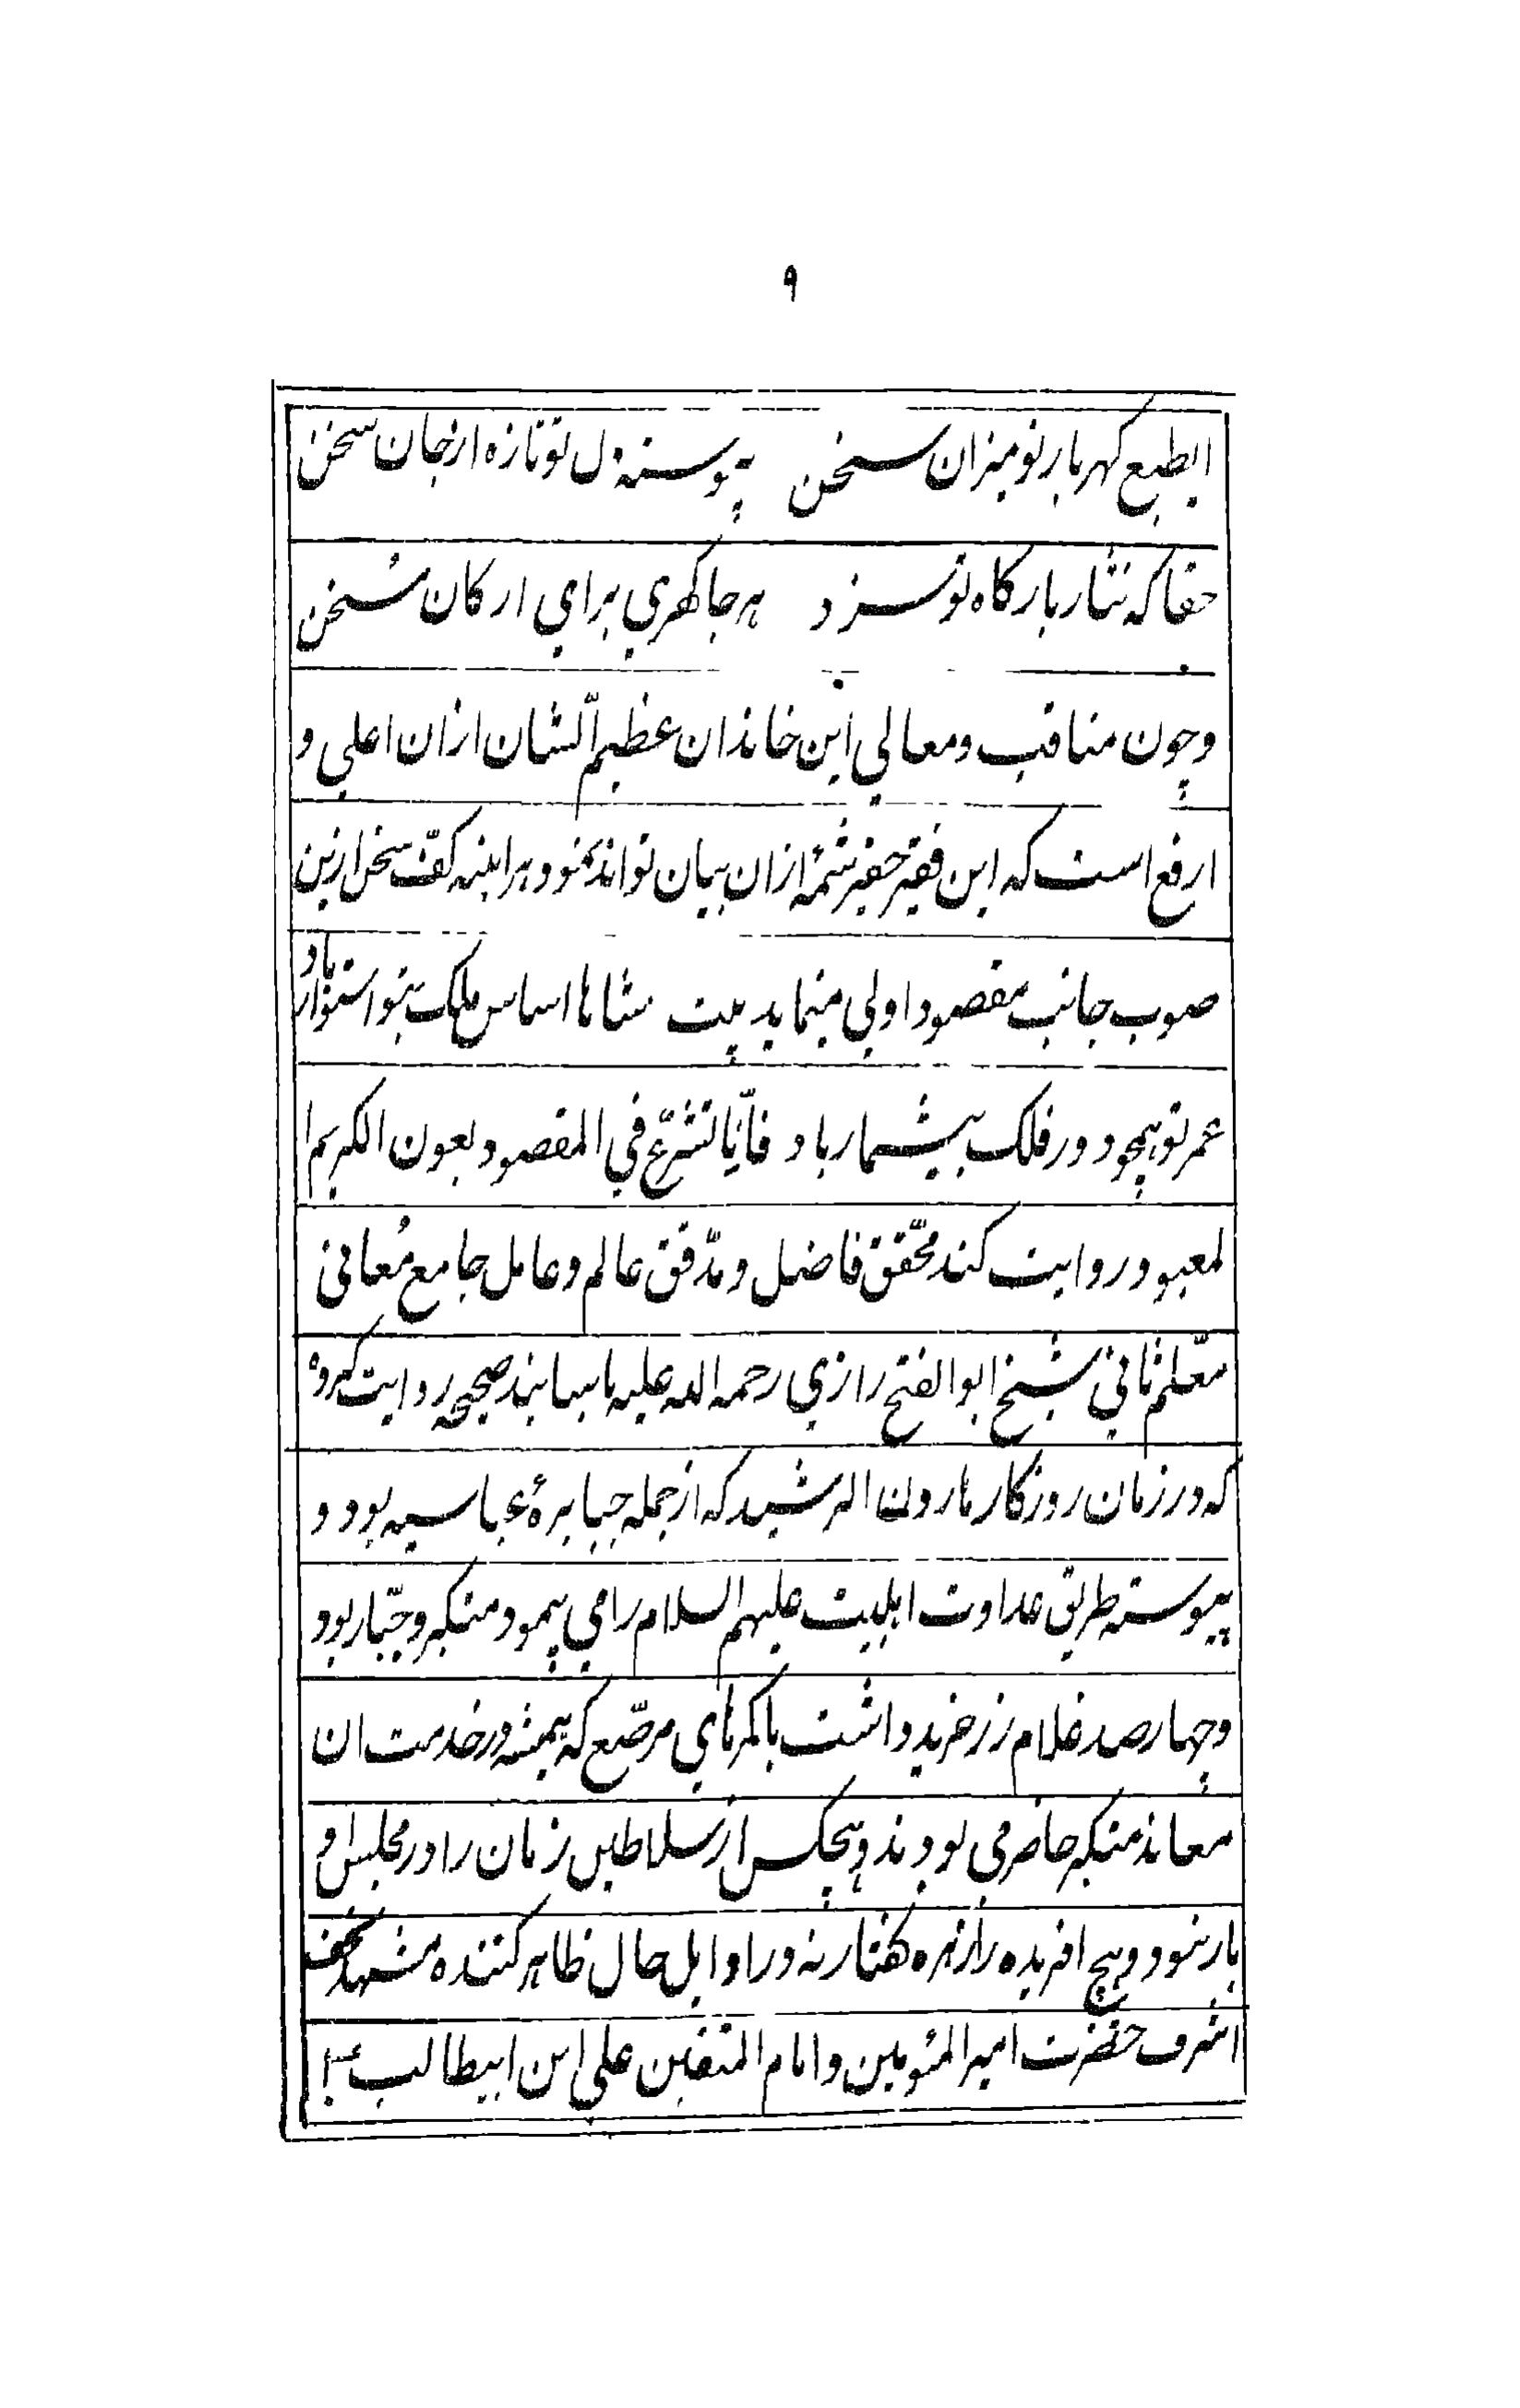 ۹
ایطبع کهربار تو میزان سخن پیوسته دل تو تازه از جان سخن
حقا که نثار بارکاه تو سزد هر جا کهری برای ارکان سخن
و چون مناقب و معالی این خاندان عظیم الّشان ازان اعلی و
ارفع است که این فقیر حقیر شمهٔ ازان بیان تواند نمود هر اینه کفّ سخن ازین
صوب جانب مقصود اولی مینماید بیت شاها اساس ملک بتو استوار باد
عمر تو همچو دور فلک بیشمار باد فانّا نشرّع فی المقصود بعون الکریم ا
لمعبود روایت کند محّقق فاضل و مدّقق عالم و عامل جامع مُعانی
معّلم ثانی شیخ ابوالفتح رازی رحمه الله علیه باسانید صحیحه روایت کرده
که در زمان روزکار هارون الرشید که از جمله جبابرهٔ عباسیه بود و
پیوسته طریق عداوت اهلبیت علیهم السلام را می پیمود متکبر و جبّار بود
و چهار صد غلام زر خرید داشت با کمرهای مرصّع که همیشه در خدمت ان
معاند متکبر حاضر می بودند و هیچکس از سلاطین زمان را در مجلس او
بار نبود و هیچ افریده را زهره کفتار نه در اوایل حال ظاهر کننده مشهد نجف
اشرف حضرت امیر المئومنین و امام المتقین علی ابن ابیطالب ع